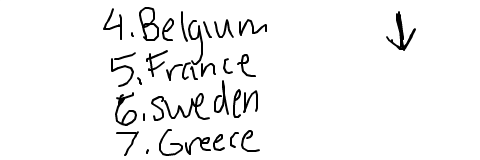 4. Belgium
5. France
6. sweden
7. Greece